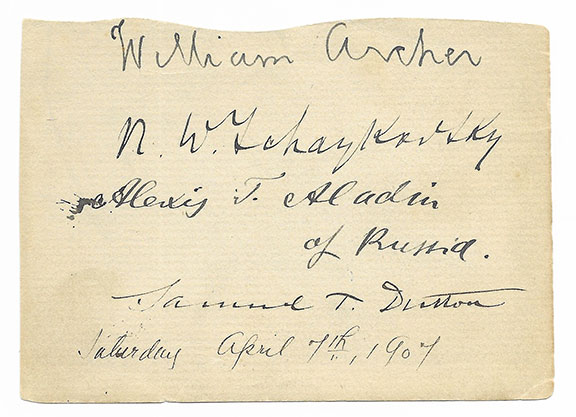 William Archer
N. W. Tchaykovsky
Alexis T. Aladin
of Russia.
Samuel T. Dutton
Saturday April 7th, 1907